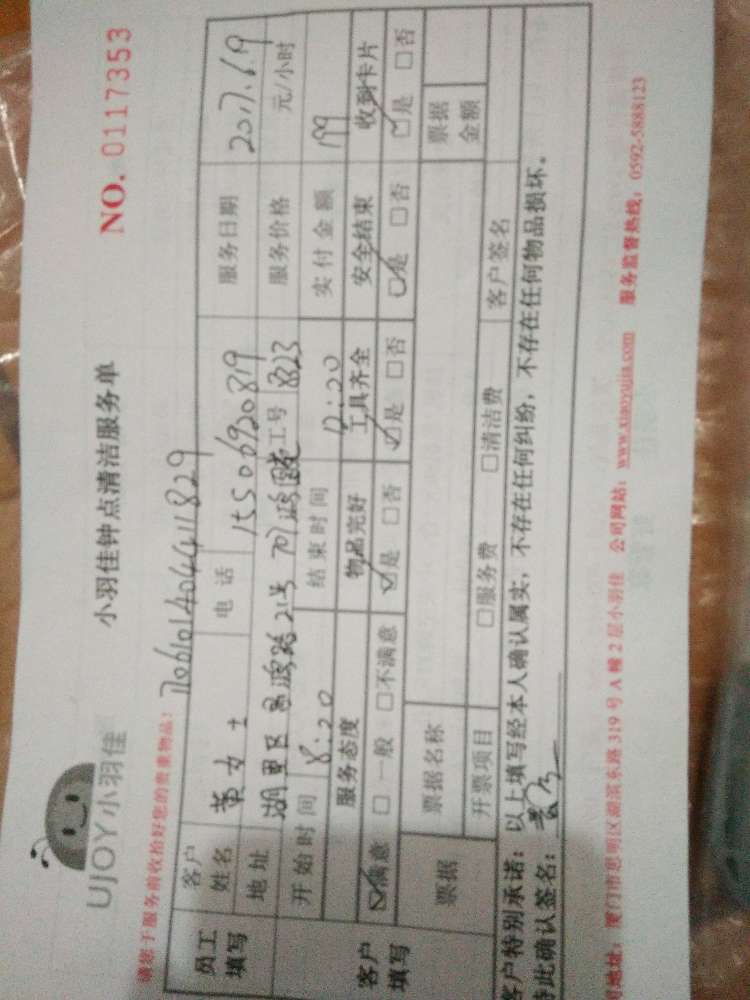 UJOY小羽佳
小羽佳钟点清洁服务单
NO. 0117353
请您于服务前收拾好您的贵重物品:
170610140441829
员工填写
客户姓名 黄女士 电话 15506920819 服务日期 2017.6.19
地址 湖里区 路21号 701 工号 823 服务价格 元/小时
开始时间 8:20 结束时间 12:20 实付金额 199
客户填写
服务态度 物品完好 工具齐全 安全结束 收到卡片
☑满意 □一般 □不满意 ☑是 □否 ☑是 □否 ☑是 □否 ☑是 □否
票据 票据名称 票据金额
开票项目 □服务费 □清洁费 客户签名
客户特别承诺:以上填写经本人确认属实,不存在任何纠纷,不存在任何物品损坏。
特此确认签名:
司地址:厦门市思明区湖滨东路319号A幢2层小羽佳 公司网站:www.xiaoyujia.com 服务监督热线:0592-5888123